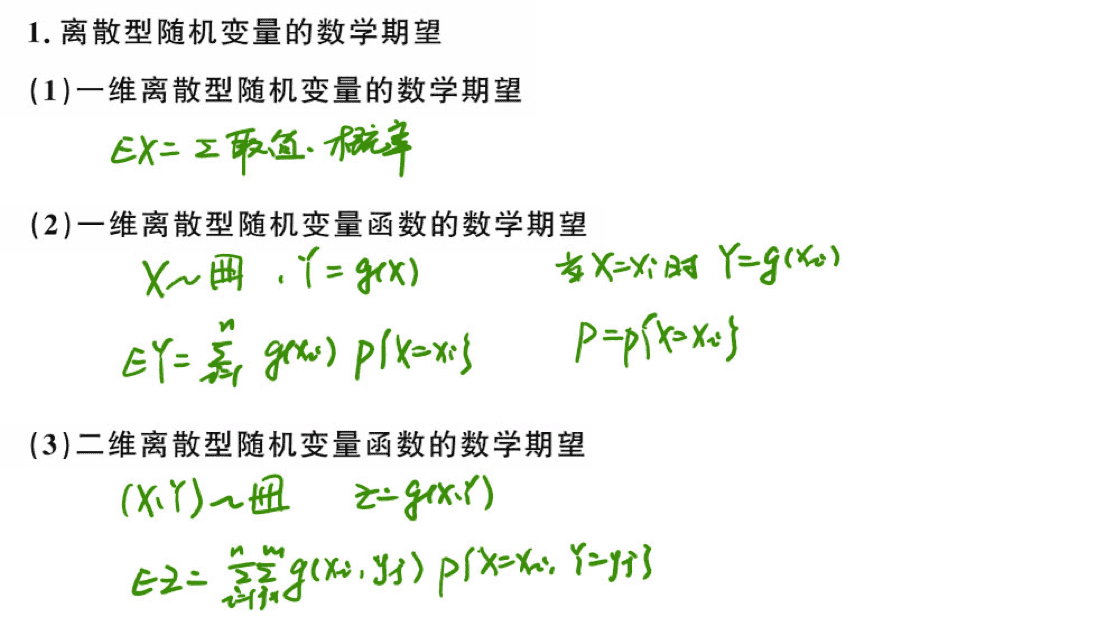 1. 离散型随机变量的数学期望
(1)一维离散型随机变量的数学期望
EX=Σ取值·概率
(2)一维离散型随机变量函数的数学期望
X~ , Y=g(X) 当X=xi时 Y=g(xi)
EY=Σ_{i=1}^{n} g(xi) P{X=xi} P=P{X=xi}
(3)二维离散型随机变量函数的数学期望
(X,Y)~ Z=g(X,Y)
EZ=Σ_{i=1}^{n}Σ_{j=1}^{m} g(xi,yj) P{X=xi, Y=yj}